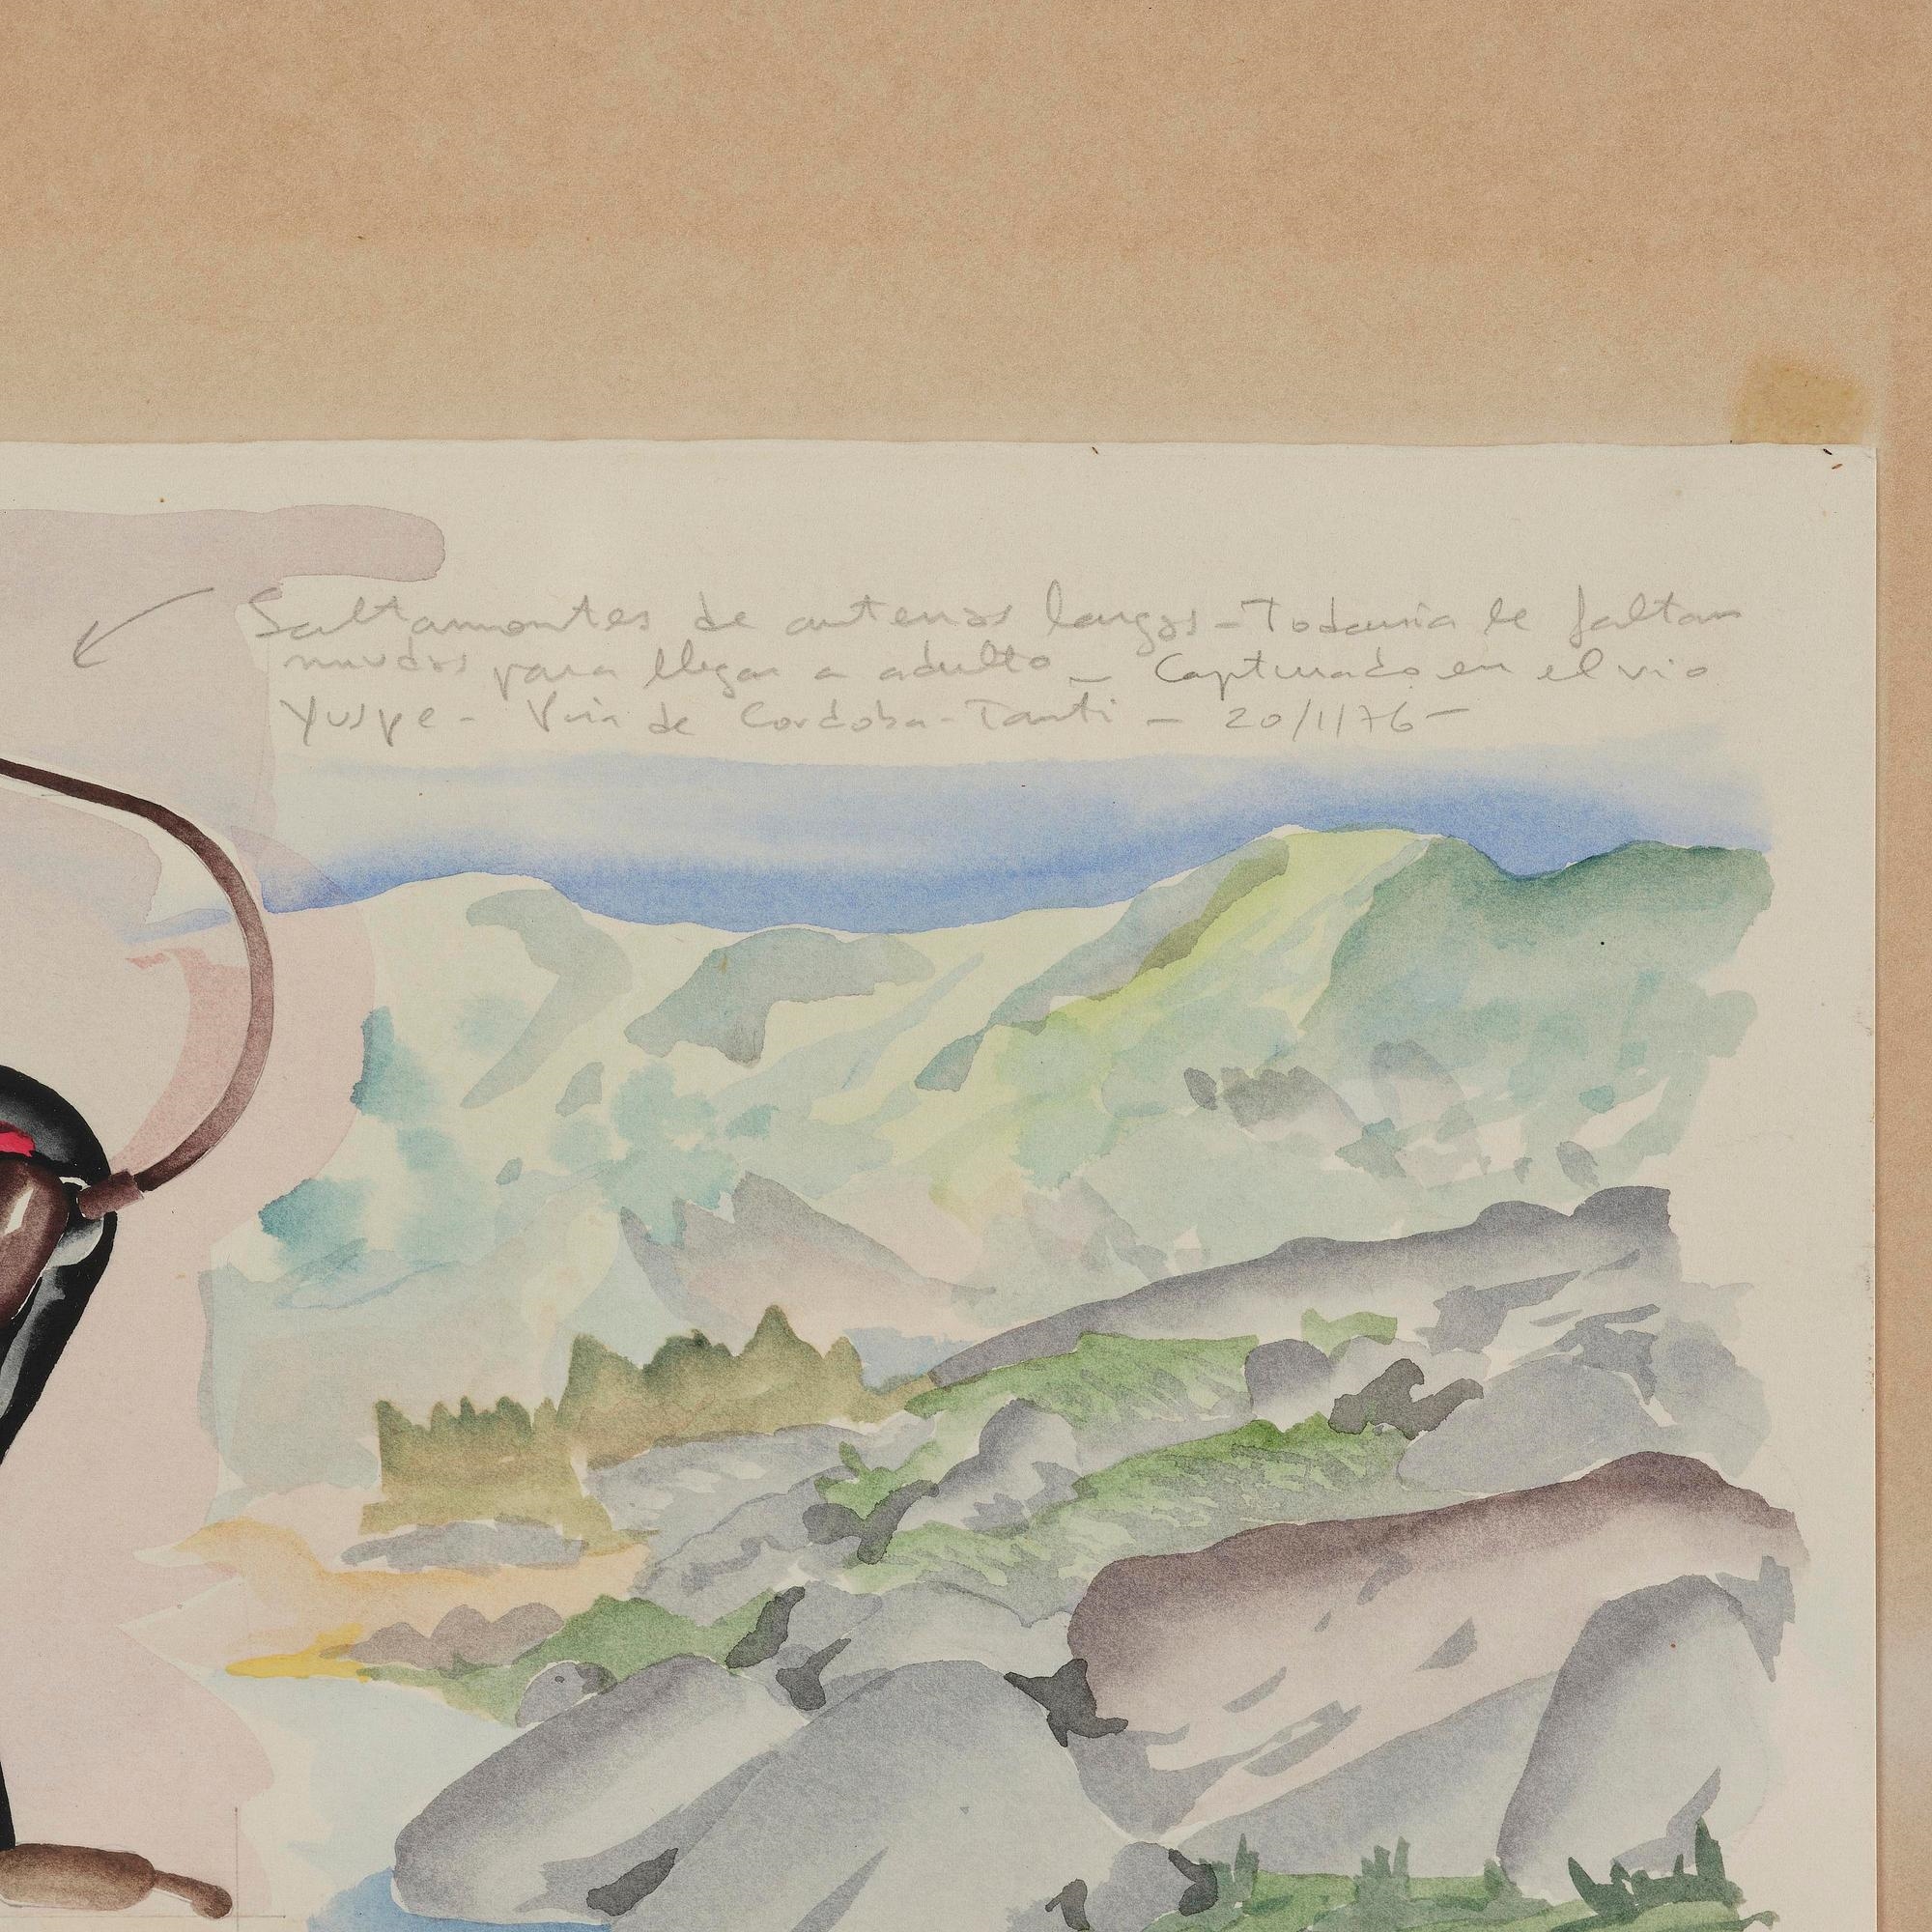 Saltamontes de antenas largas - Todavia le faltan
mudas para llegar a adulto - Capturado en el rio
Yuspe - Pcia de Cordoba - Tanti - 20/1/76 -